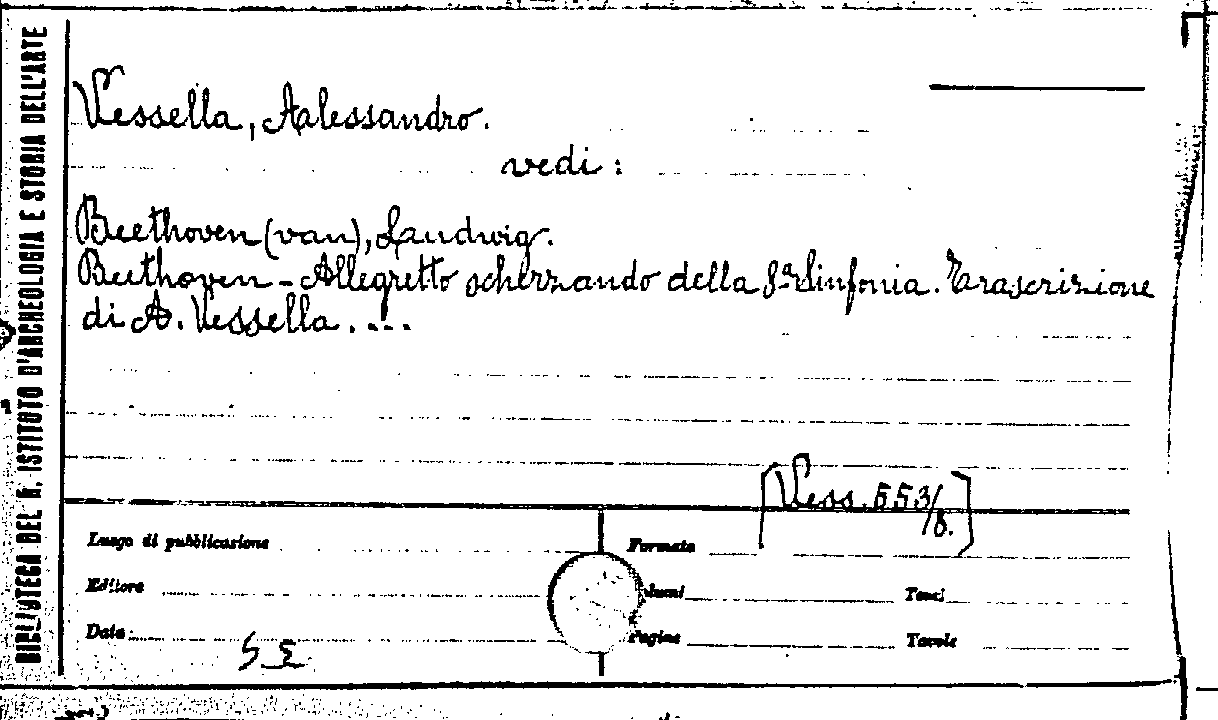 BIBLIOTECA DEL R. ISTITUTO D'ARCHEOLOGIA E STORIA DELL'ARTE
Vessella, Aalessandro.
vedi :
Beethoven (van), Laudwig.
Beethoven - Allegretto scherzando della 8ª Sinfonia. Trascrizione
di A. Vessella . . . .
[Vess. 553/8.]
Luogo di pubblicazione
Formato
Editore
Volumi
Tomi
Data
Pagine
Tavole